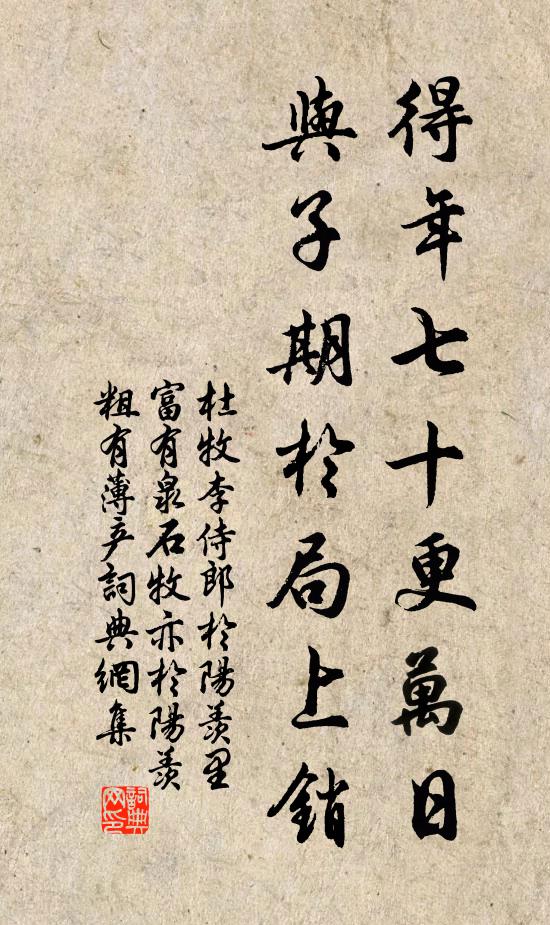 得年七十更萬日
與子期於局上銷
杜牧李侍郎於陽羨里
富有泉石牧亦於陽羨
粗有薄产詞典網集
詞典网印